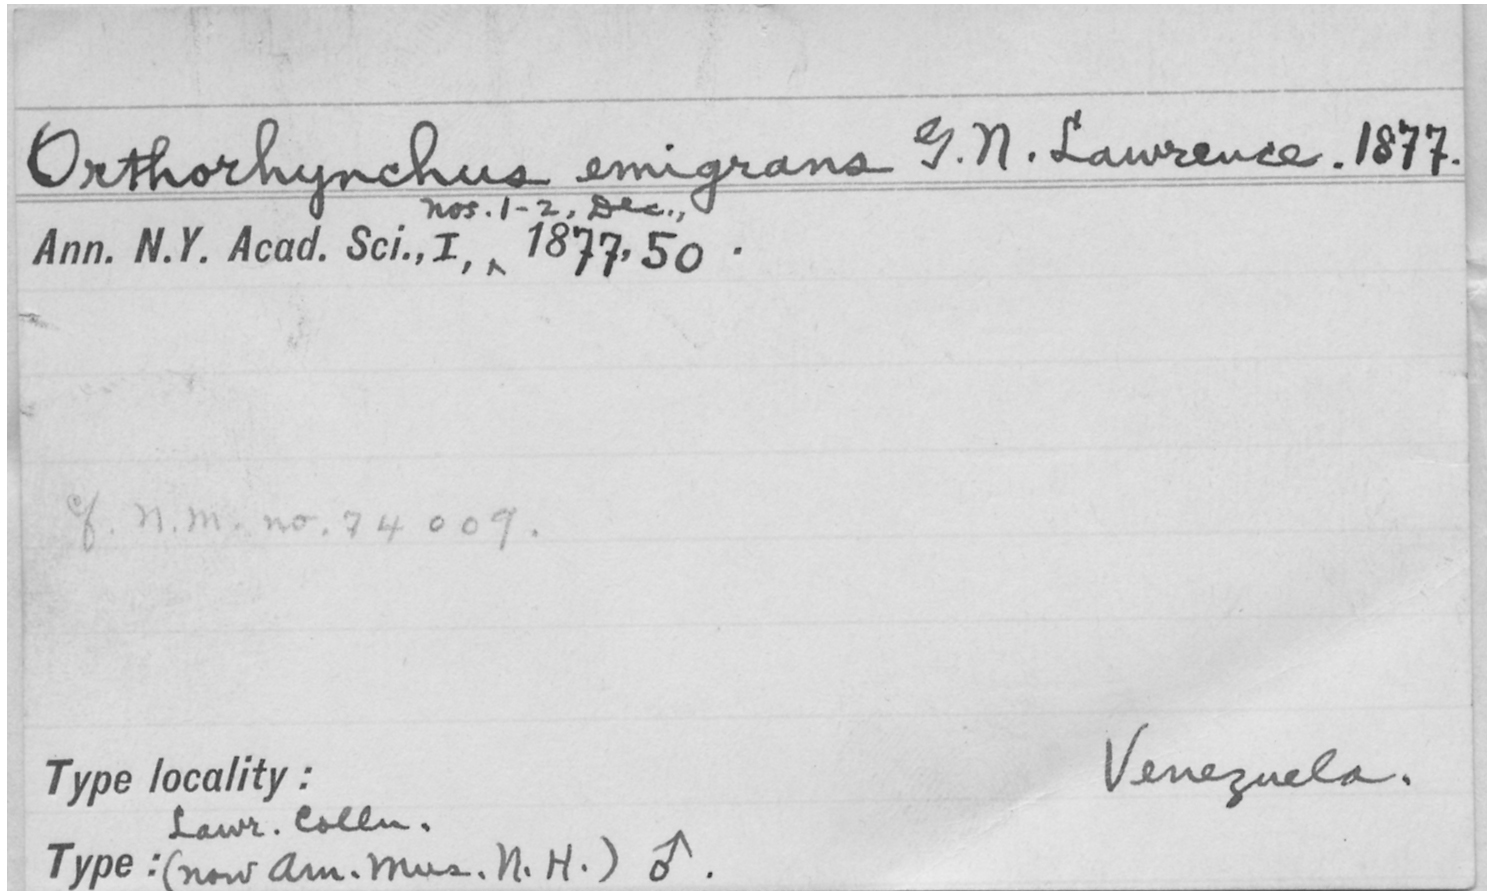 Orthorhynchus emigrans G. N. Lawrence. 1877.
nos. 1-2, Dec.,
Ann. N.Y. Acad. Sci., I, ‸ 1877, 50.
cf. N.M. no. 74009.
Type locality: Venezuela.
Lawr. Colln.
Type: (now Am. Mus. N. H.) ♂.